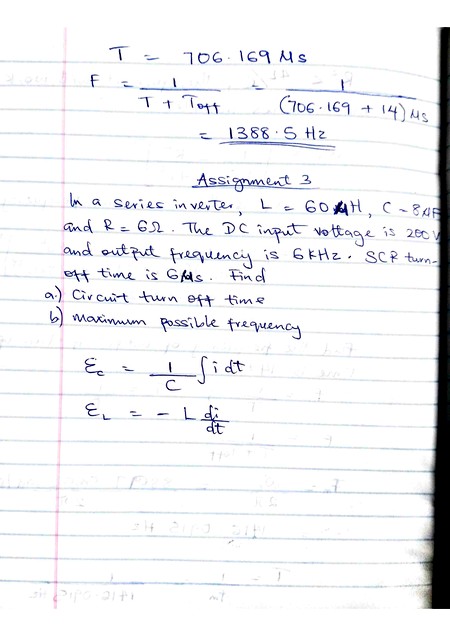 T = 706.169 Ms
F = 1/(T + Toff) = 1/((706.169 + 14) Ms)
= 1388.5 Hz
Assignment 3
In a series inverter, L = 60 μH, C = 8μF
and R = 6Ω. The DC input voltage is 200V
and output frequency is 6 KHz. SCR turn-
off time is 6μs. Find
a.) Circuit turn off time
b) maximum possible frequency
Ec = 1/C ∫ i dt
EL = - L di/dt